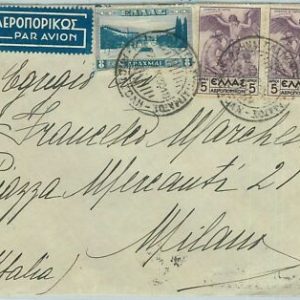 ΑΕΡΟΠΟΡΙΚΩΣ
PAR AVION
ΕΛΛΑΣ
8 ΔΡΑΧΜΑΙ 8
ΕΛΛΑΣ
5 ΑΕΡΟΠΟΡΙΚΟΝ 5
5
Egregio
Francesco Marches
Piazza Mercanti 21
Milano
(Italia)